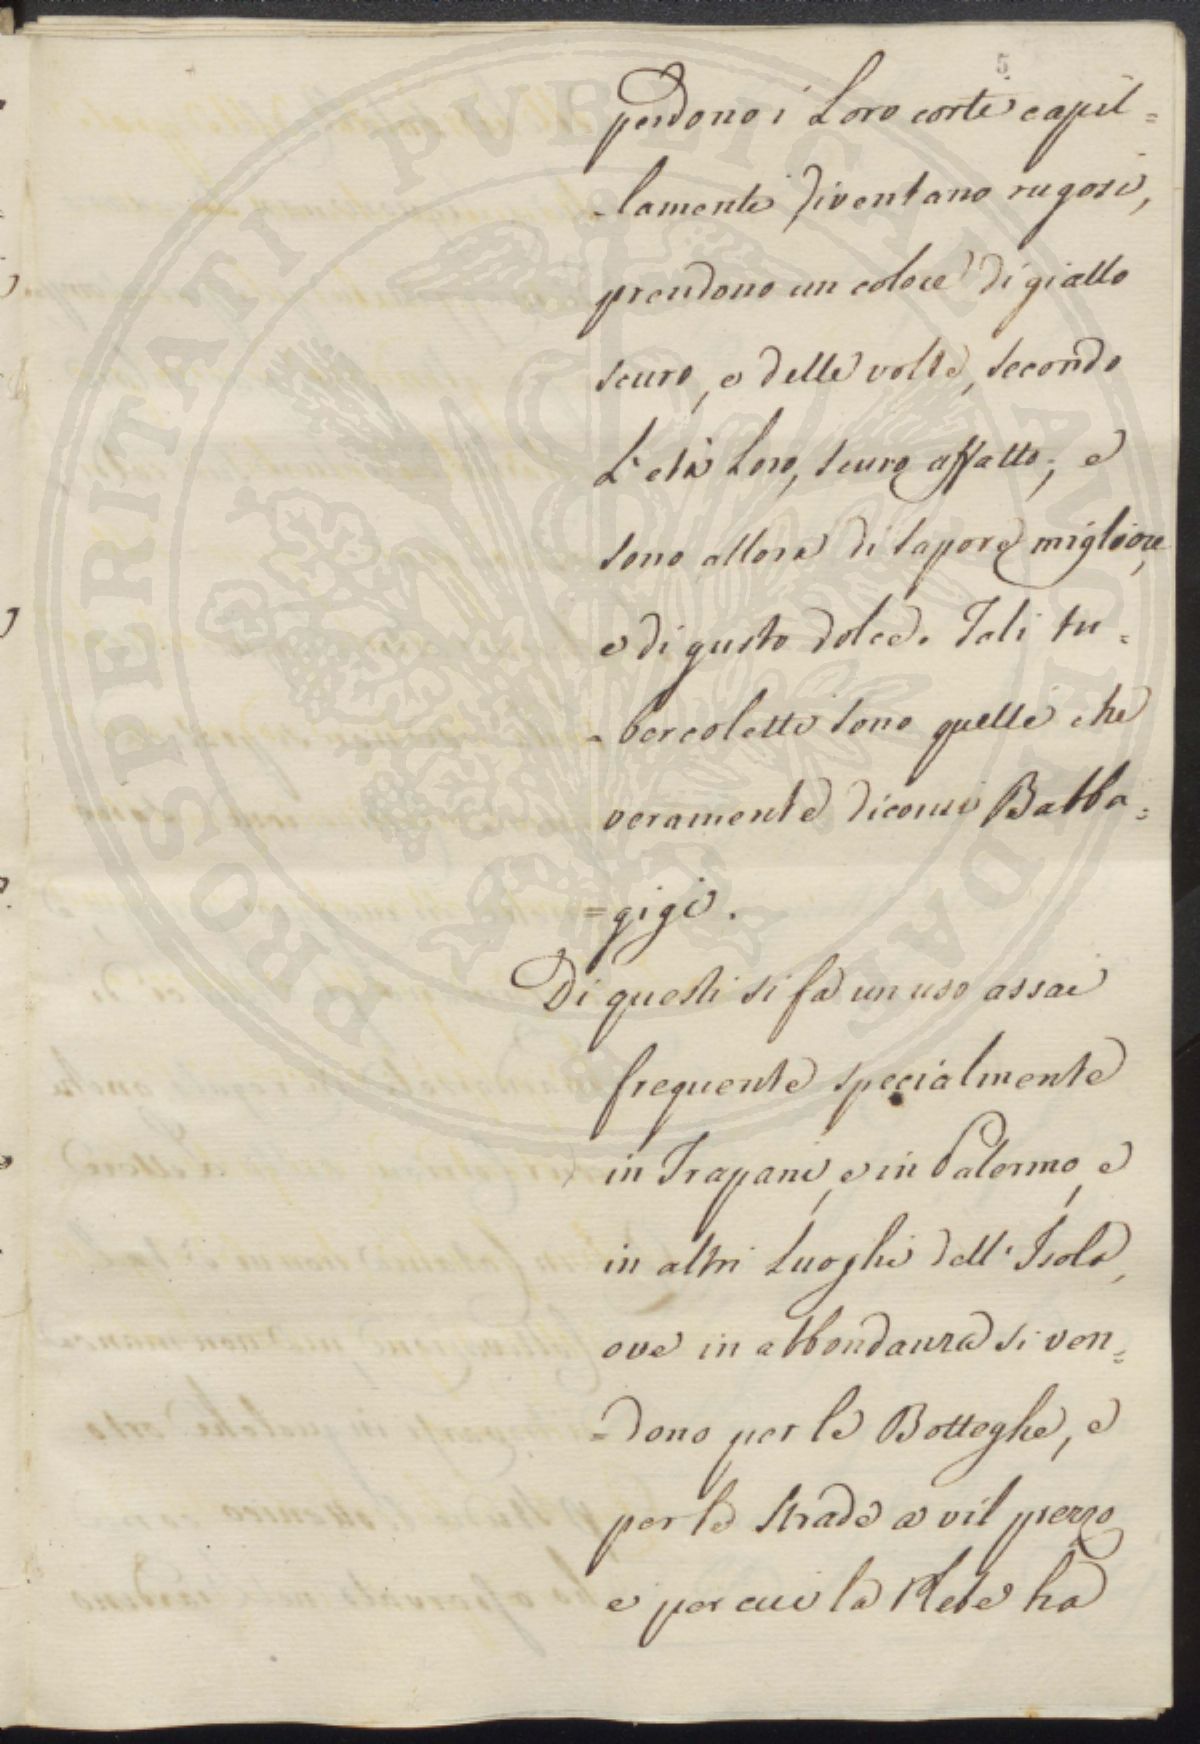 5
perdono i Loro corti capil=
=lamenti diventano rugosi,
prendono un colore di giallo
scuro, e delle volte, secondo
L'età Loro, scuro affatto; e
sono allora di sapore migliore,
e di gusto dolce. Tali tu=
=bercoletti sono quelli che
veramente diconsi Babba=
=gigi.
Di questi si fà un uso assai
frequente specialmente
in Trapani, e in Palermo, e
in altri Luoghi dell'Isola,
ove in abbondanza si ven=
=dono per le Botteghe, e
per le strade a vil prezzo
e per cui la Plebe hà
PROSPERITATI PVBLICAE AVGENDAE